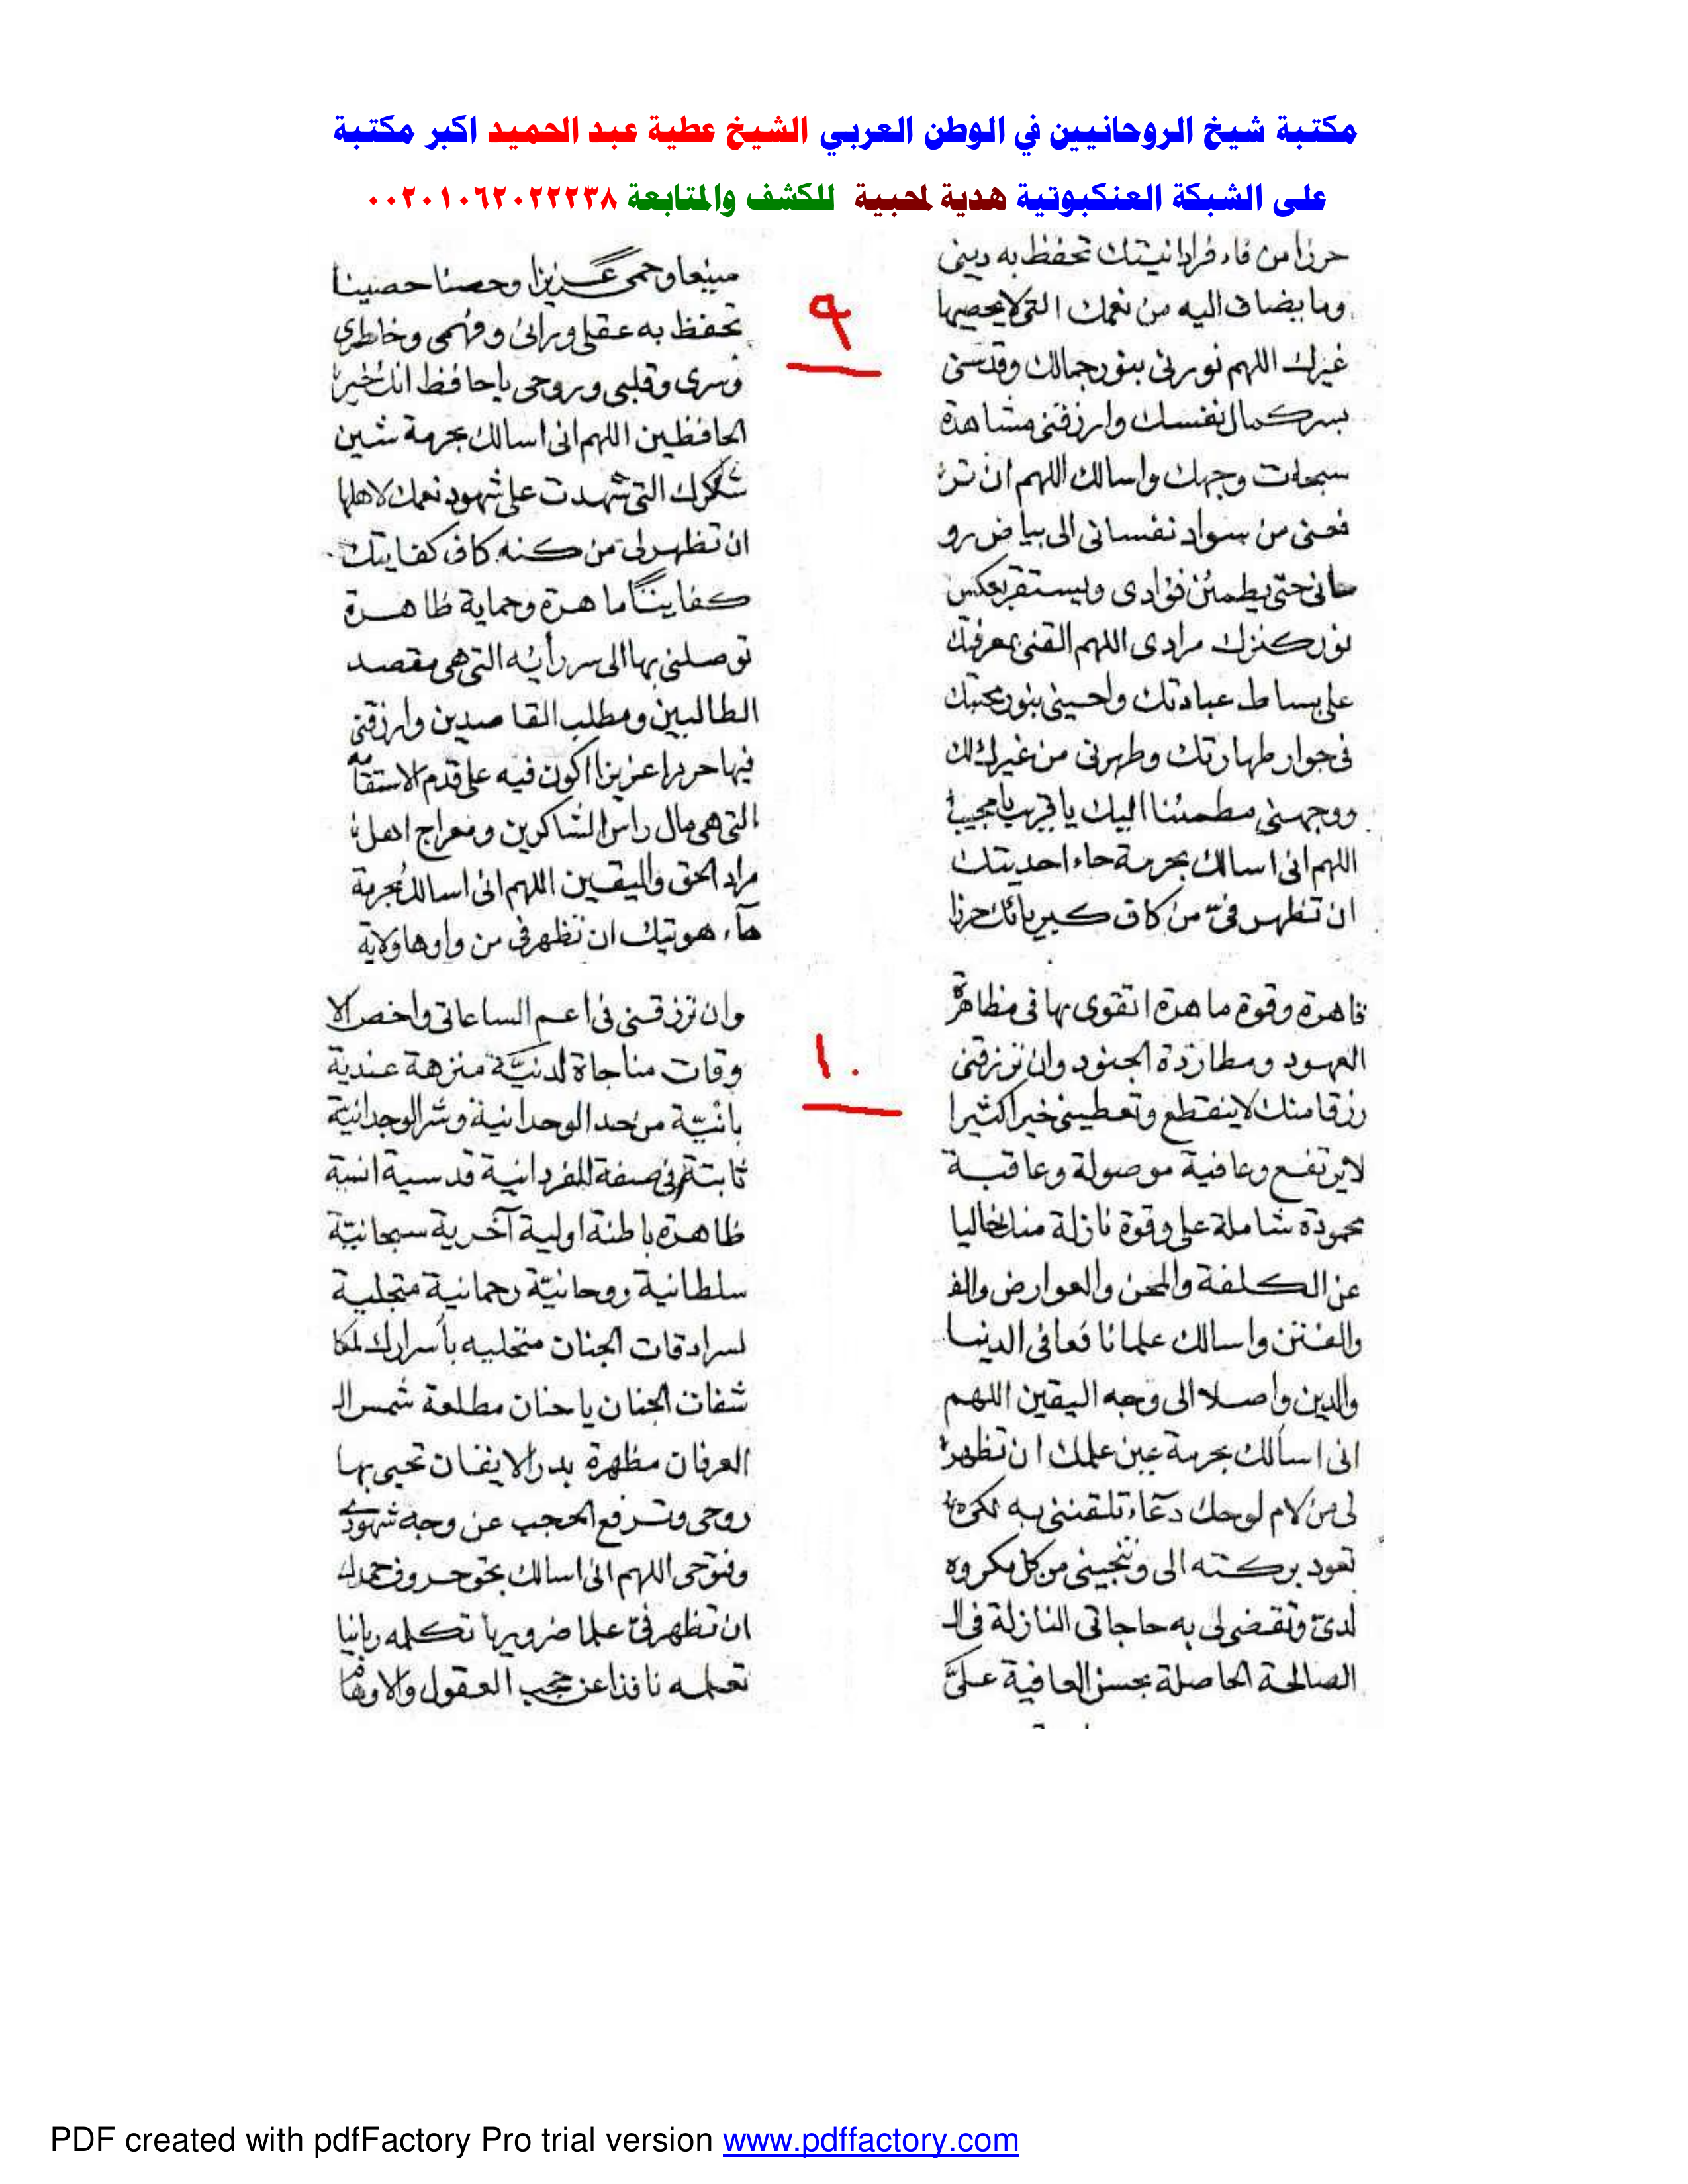 مكتبة شيخ الروحانيين في الوطن العربي الشيخ عطية عبد الحميد اكبر مكتبة
على الشبكة العنكبوتية هدية لمحبية للكشف والمتابعة ٠٠٢٠١٠٦٢٠٢٢٢٣٨
٩
حرزا من فاء فردانيتك تحفظ به دينى
وما يضاف اليه من نعمك التى لا يحصيها
غيرك اللهم نورنى بنور جمالك وقدسنى
بسر كمال نفسك وارزقنى مشاهدة
سبحات وجهك واسالك اللهم ان تر
فعنى من سواد نفسانى الى بياض رو
حانى حتى يطمئن فؤادى ويستقر بعكس
نور كنزك مرادى اللهم القنى بمعرفتك
على بساط عبادتك واحينى بنور محبتك
فى جوار طهارتك وطهرنى من غيرك لك
ووجهنى مطمئنا اليك يا قريب يا مجيب
اللهم انى اسالك بحرمة حاء احديتك
ان تظهر فىّ من كاف كبريائك حرزا
منيعا وحمى عزيزا وحصنا حصينا
تحفظ به عقلى ورائ وفهمى وخاطرى
وسرى وقلبى وروحى يا حافظ انك خير
الحافظين اللهم انى اسالك بحرمة شين
شكرك التى شهدت على شهود نعمك لاهلها
ان تظهر لى من كنه كاف كفايتك
كفاينا ماهرة وحماية ظاهرة
توصلنى بها الى سر رأيه التى هى مقصد
الطالبين ومطلب القاصدين وارزقنى
فيها حررا عزيزا اكون فيه على قدم الاستقامه
التى هى مال راس الشاكرين ومعراج اهل
مراد الحق واليقين اللهم انى اسالك بحرمة
هآء هوتيك ان تظهر فى من واوها ولاية
١٠
قاهرة وقوة ماهرة اتقوى بها فى مظاهرة
العهود ومطاردة الجنود وان ترزقنى
رزقا منك لا ينقطع وتعطينى خيرا كثيرا
لا يرتفع وعافية موصولة وعاقبة
محمودة شاملة على وقوة نازلة منك خاليا
عن الكلفة والمحن والعوارض والف
والفتن واسالك علما نافعا فى الدنيا
والدين واصلا الى وجه اليقين اللهم
انى اسألك بحرمة عين علمك ان تظهر
لى من لام لوحك دعآء تلقننى به
تعود بركته الى وتنجينى من كل مكروه
لدىّ وتقضى لى به حاجاتى النازلة فى ال
الصالحة الحاصلة بحسن العافية علىّ
وان ترزقنى فى اعم الساعاتى واخص الا
وقات مناجاة لدنيّة منزهة عندية
بانيّة من حد الوحدانية وشر الوجدانية
ثابتة فى صفة الفردانية قدسية انسية
ظاهرة باطنة اولية آخرية سبحانيّة
سلطانية روحانيّة رحمانية متجلية
لسرادقات الجنان متحليه بأسرارك لمكا
شفات الجنان يا حنان مطلعة شمس ال
العرفان مظهرة بدر الايقان تحيى بها
روحى وترفع الحجب عن وجه شهودى
وفتوحى اللهم انى اسالك بحق حروف حمدك
ان تظهر فىّ علما ضروريا تكلمه ربانيا
تعلمه نافذا عن حجب العقول والاوهام
PDF created with pdfFactory Pro trial version www.pdffactory.com